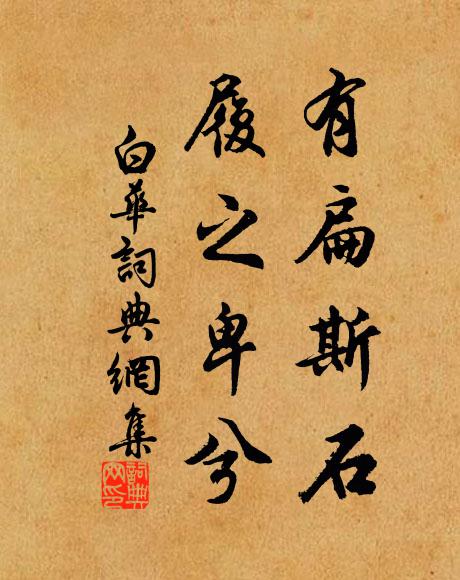 有扁斯石
履之卑兮
白華詞典網集